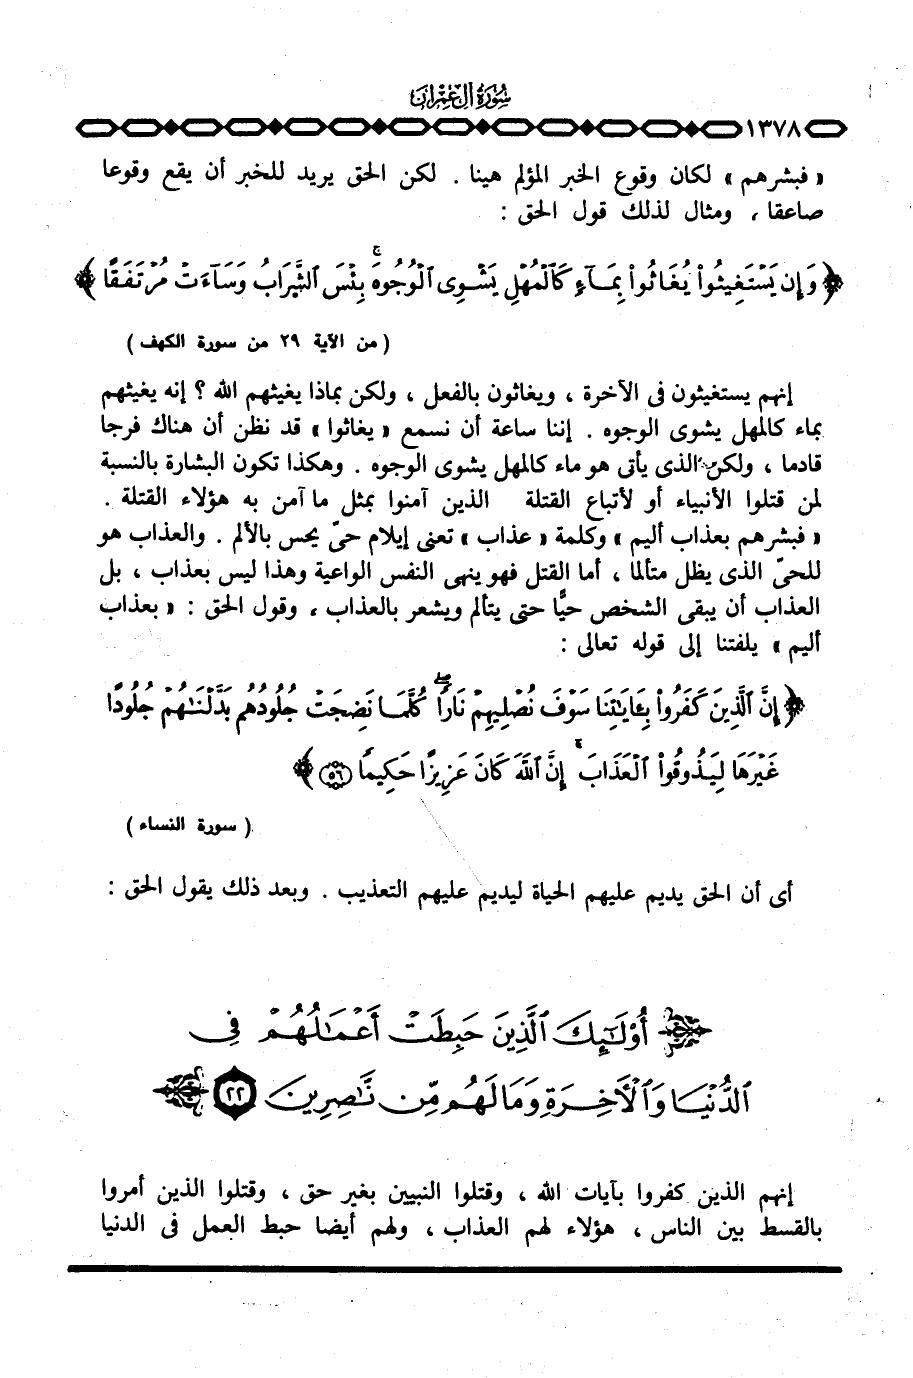 سُورَةُ آلِ عِمْرَانَ
١٣٧٨
« فبشرهم » لكان وقوع الخبر المؤلم هينا . لكن الحق يريد للخبر أن يقع وقوعا
صاعقا ، ومثال لذلك قول الحق :
﴿ وَإِن يَسْتَغِيثُوا۟ يُغَاثُوا۟ بِمَآءٍ كَٱلْمُهْلِ يَشْوِى ٱلْوُجُوهَ ۚ بِئْسَ ٱلشَّرَابُ وَسَآءَتْ مُرْتَفَقًا ﴾
( من الآية ٢٩ من سورة الكهف )
إنهم يستغيثون فى الآخرة ، ويغاثون بالفعل ، ولكن بماذا يغيثهم الله ؟ إنه يغيثهم
بماء كالمهل يشوى الوجوه . إننا ساعة أن نسمع « يغاثوا » قد نظن أن هناك فرجا
قادما ، ولكن الذى يأتى هو ماء كالمهل يشوى الوجوه . وهكذا تكون البشارة بالنسبة
لمن قتلوا الأنبياء أو لأتباع القتلة الذين آمنوا بمثل ما آمن به هؤلاء القتلة .
« فبشرهم بعذاب أليم » وكلمة « عذاب » تعنى إيلام حىّ يحس بالألم . والعذاب هو
للحىّ الذى يظل متألما ، أما القتل فهو ينهى النفس الواعية وهذا ليس بعذاب ، بل
العذاب أن يبقى الشخص حيًّا حتى يتألم ويشعر بالعذاب ، وقول الحق : « بعذاب
أليم » يلفتنا إلى قوله تعالى :
﴿ إِنَّ ٱلَّذِينَ كَفَرُوا۟ بِـَٔايَـٰتِنَا سَوْفَ نُصْلِيهِمْ نَارًا ۖ كُلَّمَا نَضِجَتْ جُلُودُهُم بَدَّلْنَـٰهُمْ جُلُودًا
غَيْرَهَا لِيَذُوقُوا۟ ٱلْعَذَابَ ۗ إِنَّ ٱللَّهَ كَانَ عَزِيزًا حَكِيمًا ٥٦ ﴾
( سورة النساء )
أى أن الحق يديم عليهم الحياة ليديم عليهم التعذيب . وبعد ذلك يقول الحق :
﴿ أُو۟لَـٰٓئِكَ ٱلَّذِينَ حَبِطَتْ أَعْمَـٰلُهُمْ فِى
ٱلدُّنْيَا وَٱلْـَٔاخِرَةِ وَمَا لَهُم مِّن نَّـٰصِرِينَ ٢٢ ﴾
إنهم الذين كفروا بآيات الله ، وقتلوا النبيين بغير حق ، وقتلوا الذين أمروا
بالقسط بين الناس ، هؤلاء لهم العذاب ، ولهم أيضا حبط العمل فى الدنيا